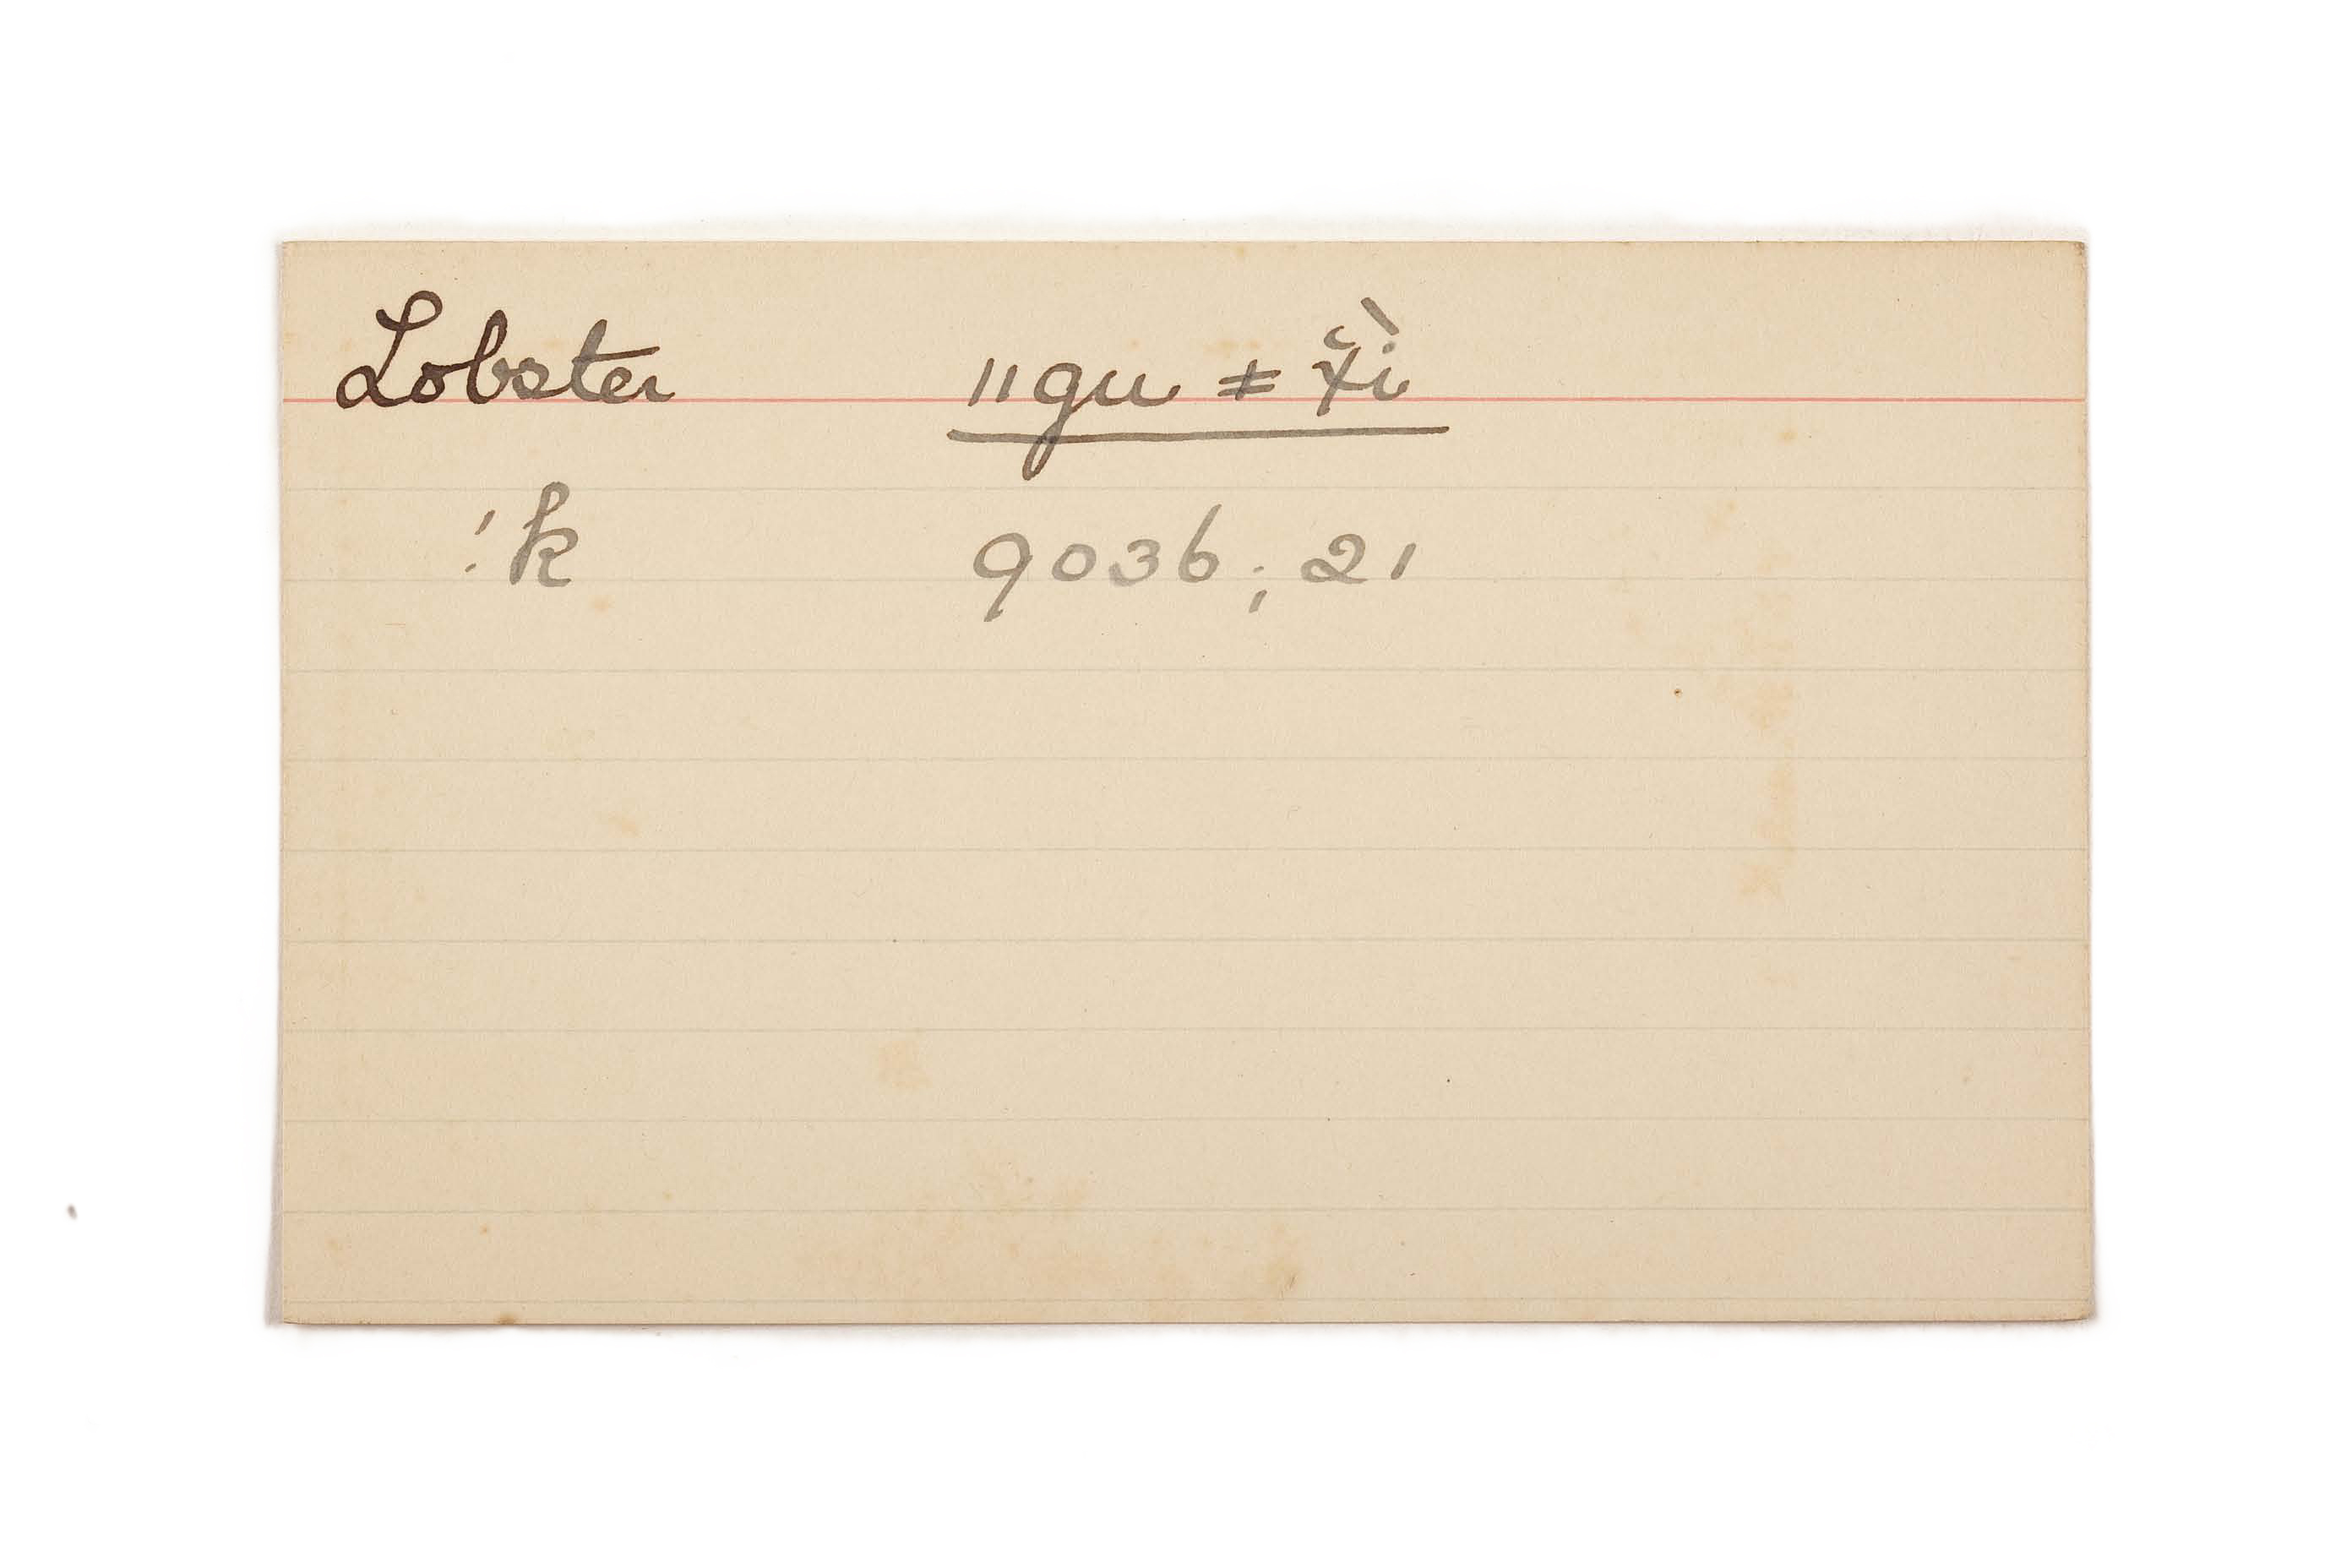 Lobster ǁgu ǂx̮̆ì
!k 9036; 21